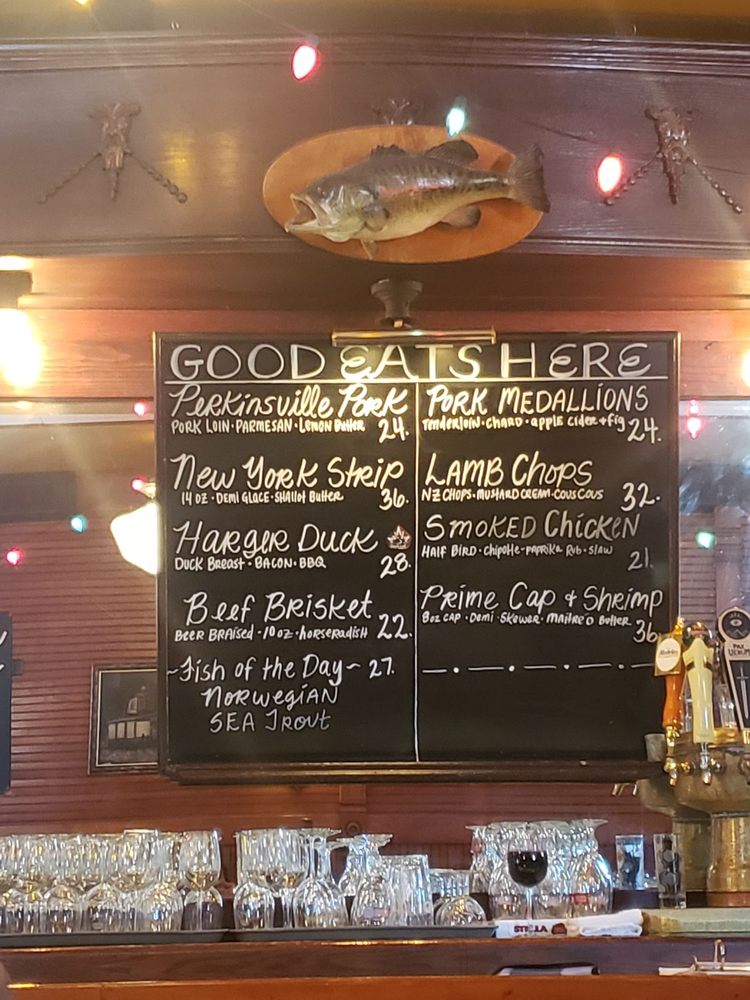 GOOD EATS HERE
Perkinsville Pork
PORK LOIN · PARMESAN · Lemon Butter 24.
New York Strip
14 OZ · Demi Glace · Shallot Butter 36.
Harger Duck
Duck Breast · BACON · BBQ 28.
Beef Brisket
BEER BRAISED · 10 oz · horseradish 22.
~Fish of the Day~ 27.
Norwegian
SEA Trout
PORK MEDALLIONS
Tenderloin · CHARD · apple cider + fig 24.
LAMB Chops
NZ CHOPS · MUSTARD CREAM · COUS COUS 32.
SMOKED Chicken
HALF BIRD · Chipotle - PAPRIKA Rub · Slaw 21.
Prime Cap + Shrimp
8oz CAP · Demi · Skewer · MAITRE D Butter 36.
PAX
VERUM
STELLA